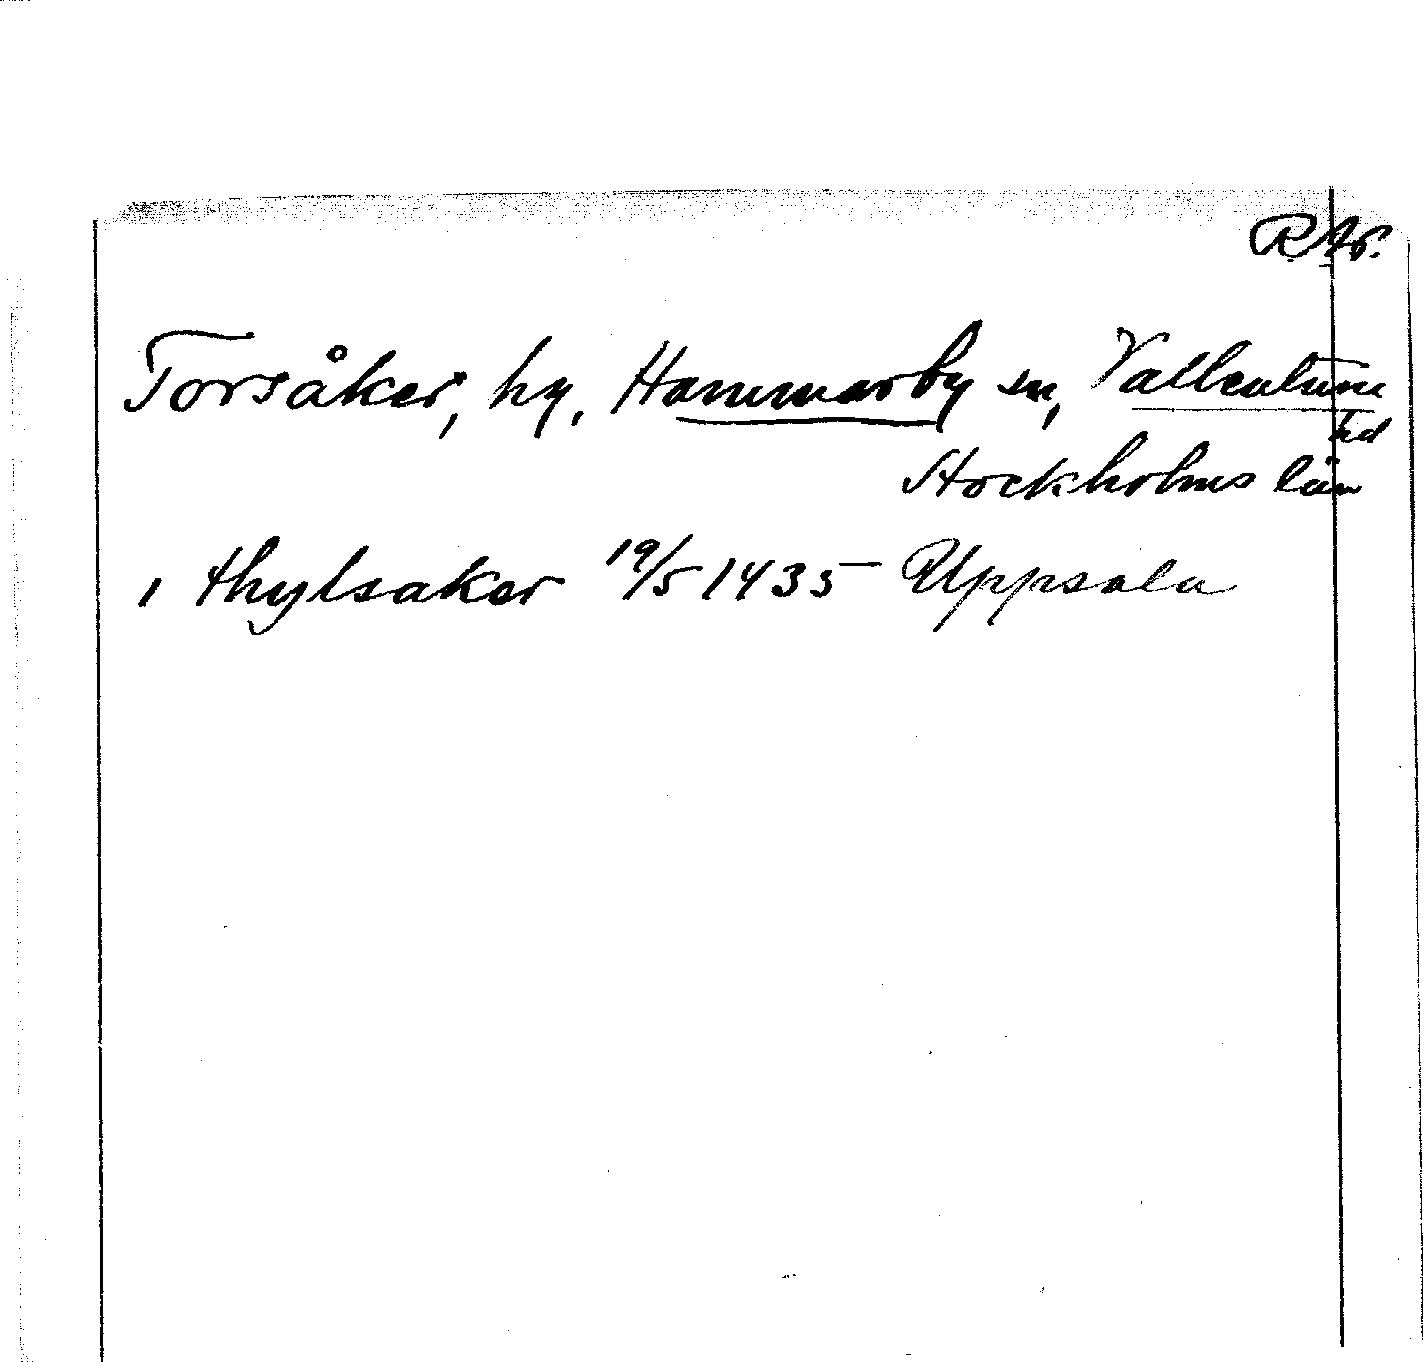 RAp.
Torsåker, by, Hammarby sn, Vallentuna
hd
Stockholms län
, thylsaker 19/5 1435 Uppsala